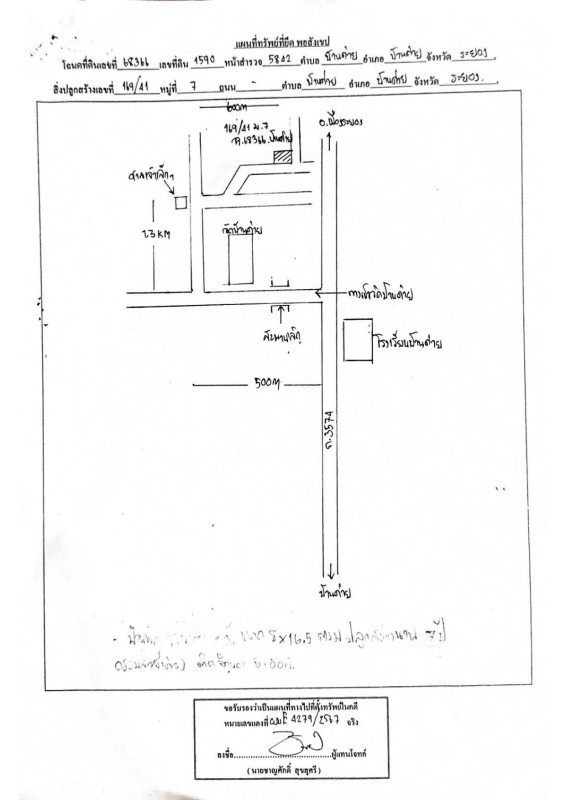 แผนที่ทรัพย์ที่ยึด พอสังเขป
โฉนดที่ดินเลขที่ 68366 เลขที่ดิน 1590 หน้าสำรวจ 5842 ตำบล บ้านค่าย อำเภอ บ้านค่าย จังหวัด ระยอง
สิ่งปลูกสร้างเลขที่ 169/41 หมู่ที่ 7 ถนน - ตำบล บ้านค่าย อำเภอ บ้านค่าย จังหวัด ระยอง
600m
169/41 ม.7
ต.68366.บ้านค่าย
อ.เมืองระยอง
ศาลเจ้าเล็กๆ
1.3 KM
วัดบ้านค่าย
ทางเข้าวัดบ้านค่าย
สะพานเล็ก
โรงเรียนบ้านค่าย
500M
ถ.3574
บ้านค่าย
5x16.5 ตรม ปลูกสร้างนาน 7 ปี
ขอรับรองว่าเป็นแผนที่ทางไปที่ตั้งทรัพย์ในคดี
หมายเลขแดงที่ ผบE 4279/2567 จริง
ลงชื่อ..........ผู้แทนโจทก์
(นายชาญศักดิ์ สุขสุศรี)